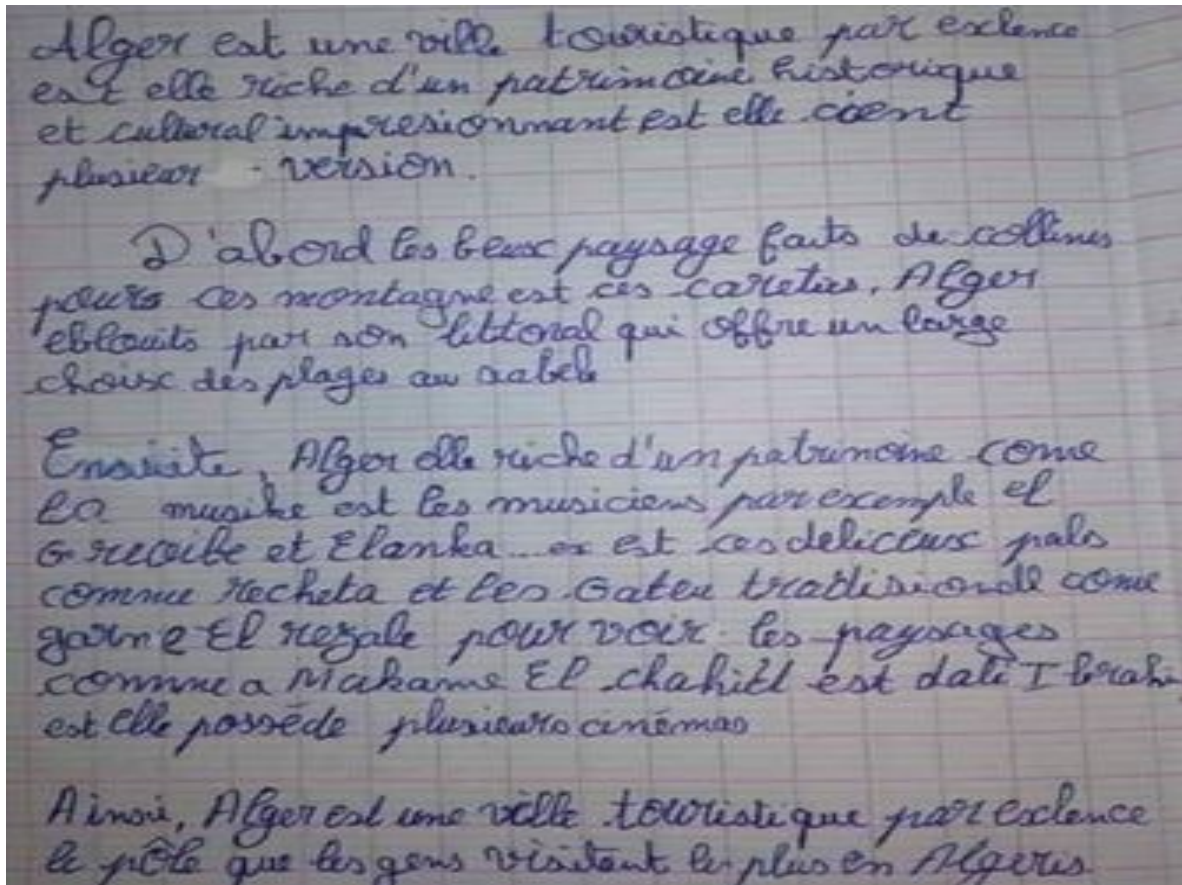 Alger est une ville touristique par exclence
est elle riche d'un patrimoine historique
et cultural impresionnant est elle cient
plusieur version.
D'abord les beux paysage faits de collines
pours ces montagne est ces caretus. Alger
eblouits par son littoral qui offre un large
choix des plages au sabele
Ensuite, Alger elle riche d'un patrimoine come
la musike est les musiciens par exemple el
Grecoibe et Elanka... est ces delicieux pals
comme recheta et les Gateu tradisionele come
garne El rezale pour voir les paysages
comme a Makame El chahitl est dali Ibrahi
est elle possède plusieurs cinémas
Ainsi, Alger est une ville touristique par exclence
le pôle que les gens visitent le plus en Algeris